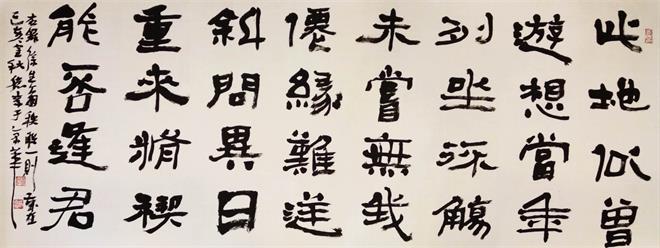 此地似曾
遊想當年
列坐流觴
未嘗無我
僊緣難逆
料問異日
重來脩禊
能否逢君
右錄徐生翁聯一則
己亥金秋於京華